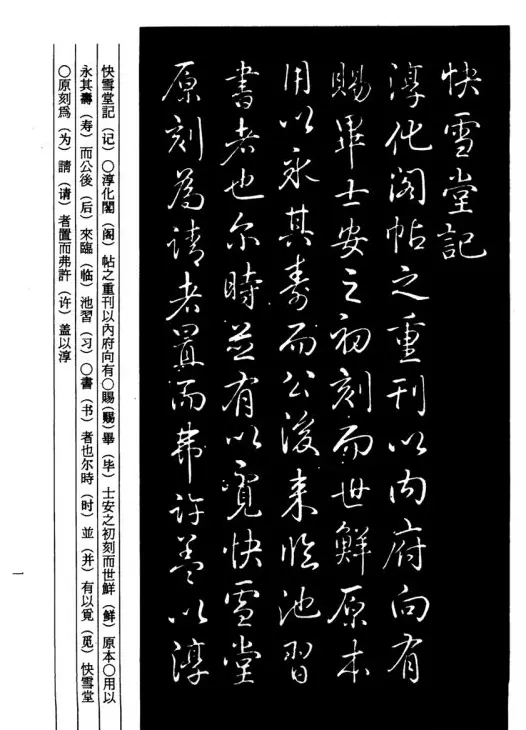 快雪堂記
淳化閣帖之重刊以内府向有
賜畢士安之初刻而世鮮原本
用以永其壽而公後来臨池習
書者也尔時並有以覓快雪堂
原刻為請者置而弗許盖以淳
快雪堂記（记）〇淳化閣（阁）帖之重刊以內府向有〇賜（赐）畢（毕）士安之初刻而世鮮（鲜）原本〇用以
永其壽（寿）而公後（后）來臨（临）池習（习）〇書（书）者也尔時（时）並（并）有以覓（觅）快雪堂
〇原刻爲（为）請（请）者置而弗許（许）盖以淳
一